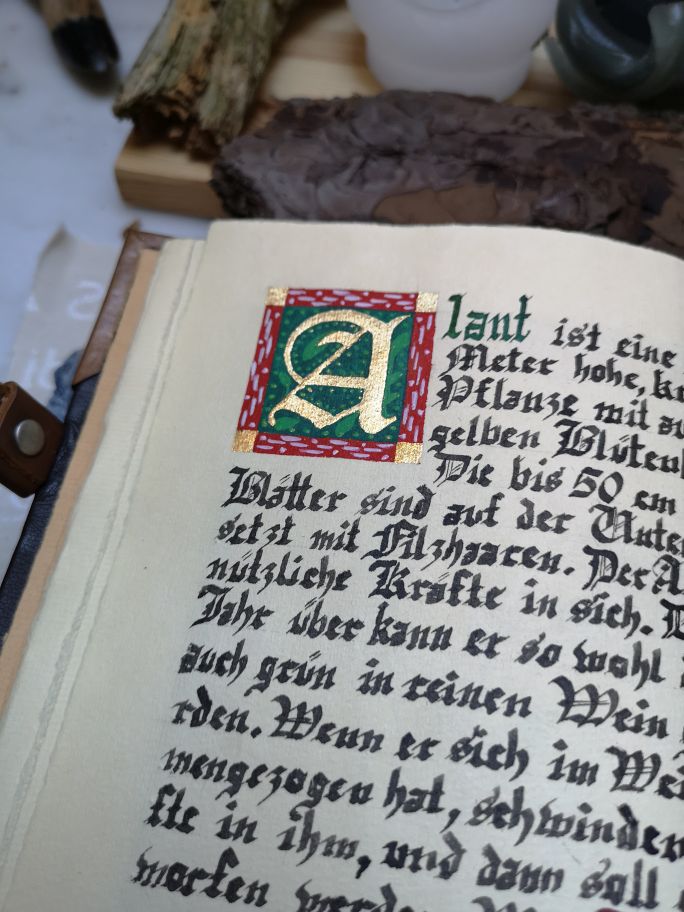 Alant ist eine
Meter hohe, kr
Pflanze mit au
gelben Blüten
Die bis 50 cm
Blätter sind auf der Unte
setzt mit Filzhaaren. Der A
nützliche Kräfte in sich. D
Jahr über kann er so wohl
auch grün in reinen Wein
rden. Wenn er sich im Wei
mengezogen hat, schwinden
fte in ihm, und dann soll
worfen werden